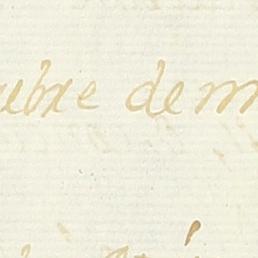 ubre de m